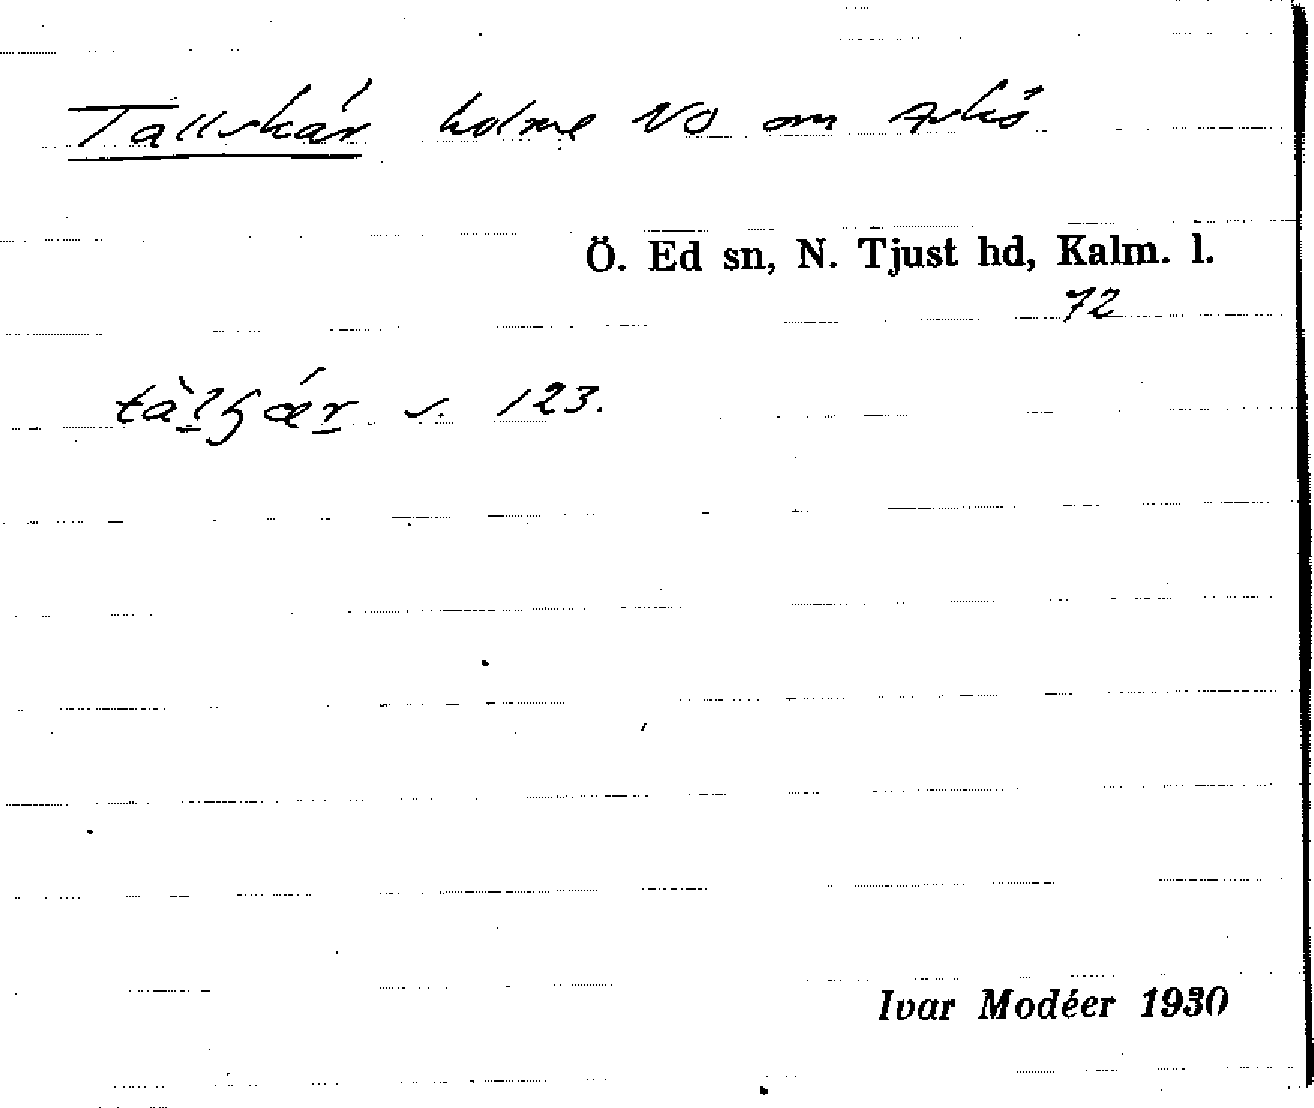 Tallskär holme NO om Askö
Ö. Ed sn, N. Tjust hd, Kalm. l.
72
s. 123.
Ivar Modéer 1930